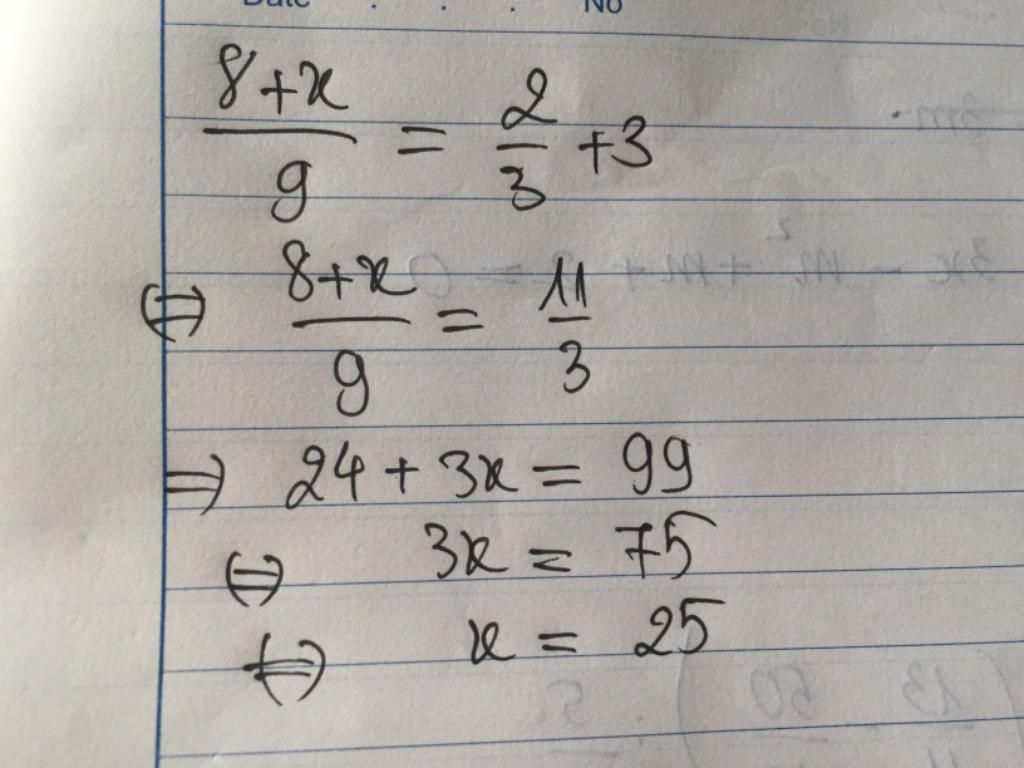 Date . . . No
8+x/9 = 2/3 + 3
⇔ 8+x/9 = 11/3
⇒ 24 + 3x = 99
⇔ 3x = 75
⇔ x = 25